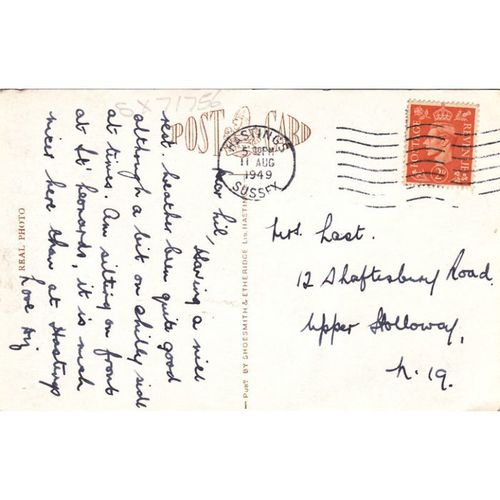 S X 71756
POST CARD
HASTINGS
5 30PM
11 AUG
1949
SUSSEX
POSTAGE
REVENUE
Dear Lil, Having a nice
rest. Weather been quite good
although a bit on chilly side
at times. Am sitting on front
at St Leonards, it is much
nicer here than at Hastings
Love
REAL PHOTO
PUBd BY SHOESMITH & ETHERIDGE Ltd. HASTINGS
Mrs. Last.
12 Shaftesbury Road.
Upper Holloway,
N. 19.